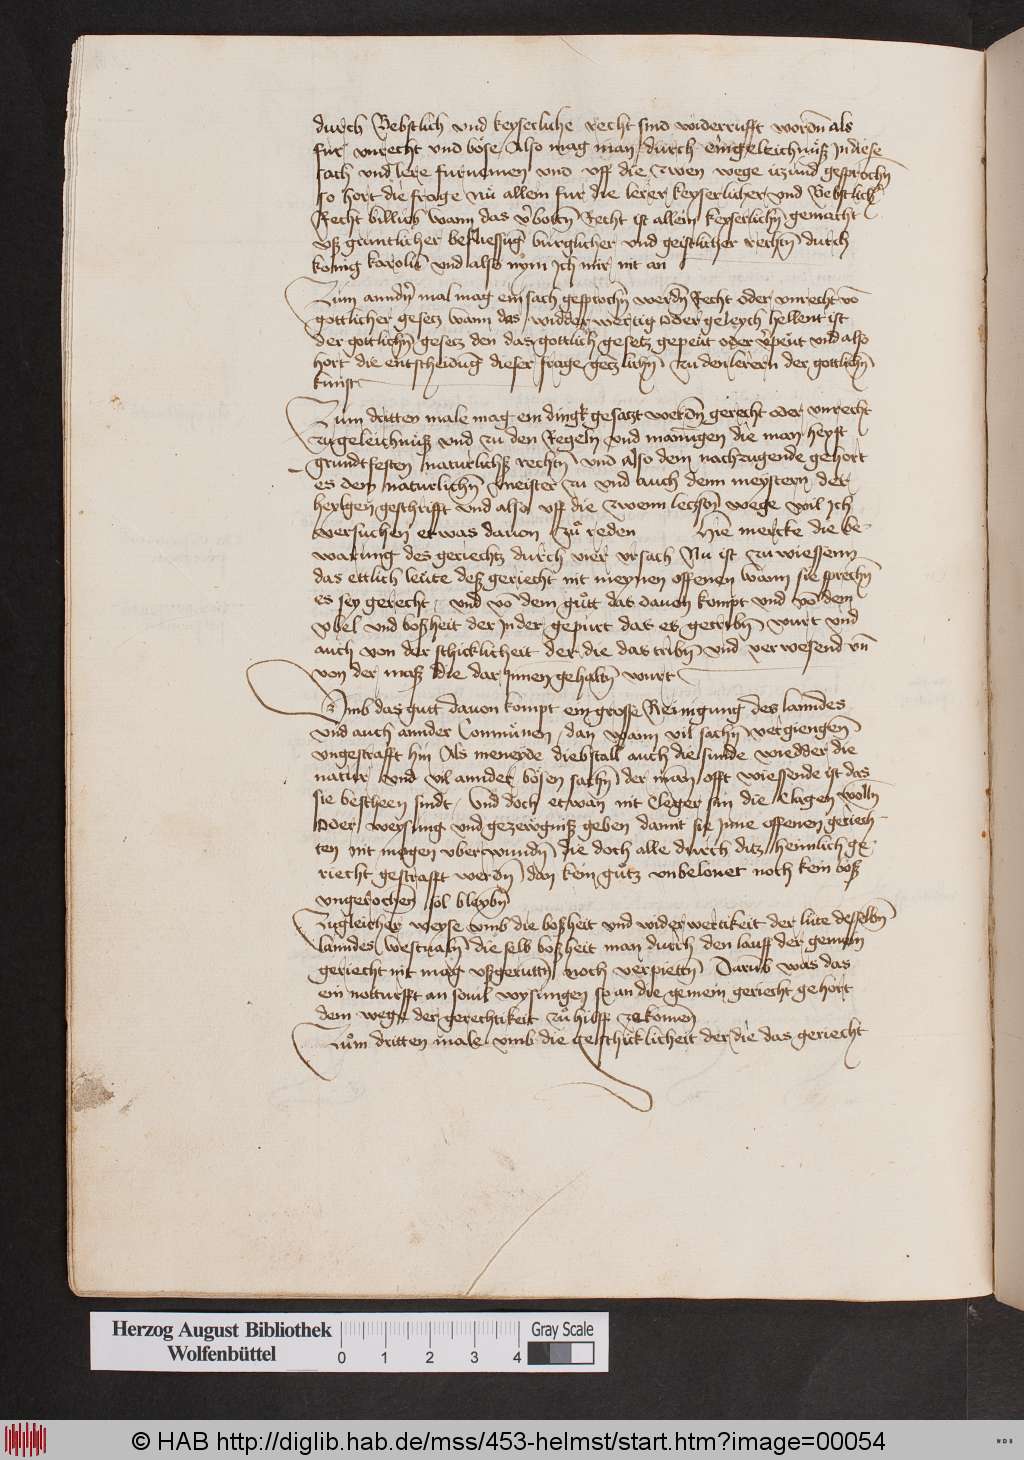 durch Bebstlich vnd keyserliche recht sind widerrufft wordn̄ als
fur vnrecht vnd böse / Also mag man durch eingeleichnüß In diese
sach vnd lere furnemen vnd vff die zwen wege itzund gesprochn̄
so hort die frage nü allein fur die lerer keyserlicher vnd Bebstlich
Recht billich wann das v̄botn̄ Recht ist allein keyserlichn̄ gemacht
vß gruntlicher befliessuḡ burglicher vnd geistlicher rechtn̄ durch
konig karolū vnd also nÿm Ich mir nit an
Zum anndn̄ mal mag ein sach gesprochn̄ werdn̄ Recht oder vnrecht vō
gottlicher gesetz wann das widderwertig oder geleych hellent ist
der gottlichn̄ gesetz den das gottlich gesetz gepeüt oder v̄peüt vnd also
hort die entscheidung dieser frage getzlichn̄ zu den lerern der gottlichn̄
kunst
Zum dritten male mag ein dingk gesatzt werdn̄ gerecht oder vnrecht
zu geleichnuß vnd zu den Regeln vnd manūgen die man heyst
gruntfesten naturlichs rechtn̄ vnd also dem nachzugende gehort
es dem naturlichn̄ meister zu vnd auch denn meystern der
heyligen geschrifft vnd also vff die zwenn letzsten wege wil Ich
versuchen etwas dauon zů reden Hie mercke die be-
warung des geriechtz durch vier vrsach Nu ist zu wiessenn
das ettlich leüte deß geriecht nit meynen offenen wann sie sprechn̄
es sey gerecht / vnd vō dem gütt das dauon kompt vnd vō dem
vbel vnd boßheit der In der gepurt dar es getribn̄ wurt vnd
auch von der schicklicheit der die das tribn̄ vnd verwesend vn̄
von der maß die dar Innen gehaltn̄ wurt
Vmb das gutt dauon kompt ein grosse Reinigung des lanndes
vnd auch annder Commünen / dan wann vil sachn̄ vergiengen
vngestrafft hin Als meneyde diebstall auch die sunde wiedder die
natur vnd vil annder bösen sachn̄ der man offt wiessende ist das
sie bescheen sindt / Vnd doch etwan nit Cleger sin die Clagen wölln̄
oder weysung vnd gezewgniß geben damit sie Inne offenen geriech-
ten nit mogen vberwundn̄ die doch alle durch ditz heimlich ge-
riecht gestrafft werdn̄ dan kein gütz vnbelonet noch kein böß
vngerochen sol blaybn̄
Zu gleicher weyse vmb die boßheit vnd widerwertikeit der lute desselbn̄
lanndes westualn̄ die selb boßheit man durch den lauff der gemein
geriecht nit mag vßgeruttn̄ noch verpietn̄ Darub was das
ein notturfft an souil wysungen so an die gemein geriecht gehört
dem wege der gerechtikeit zü hilff ze komen
Zům dritten male vmb die geschicklicheit der die das geriecht
Herzog August Bibliothek
Wolfenbüttel
0 1 2 3 4
Gray Scale
© HAB http://diglib.hab.de/mss/453-helmst/start.htm?image=00054